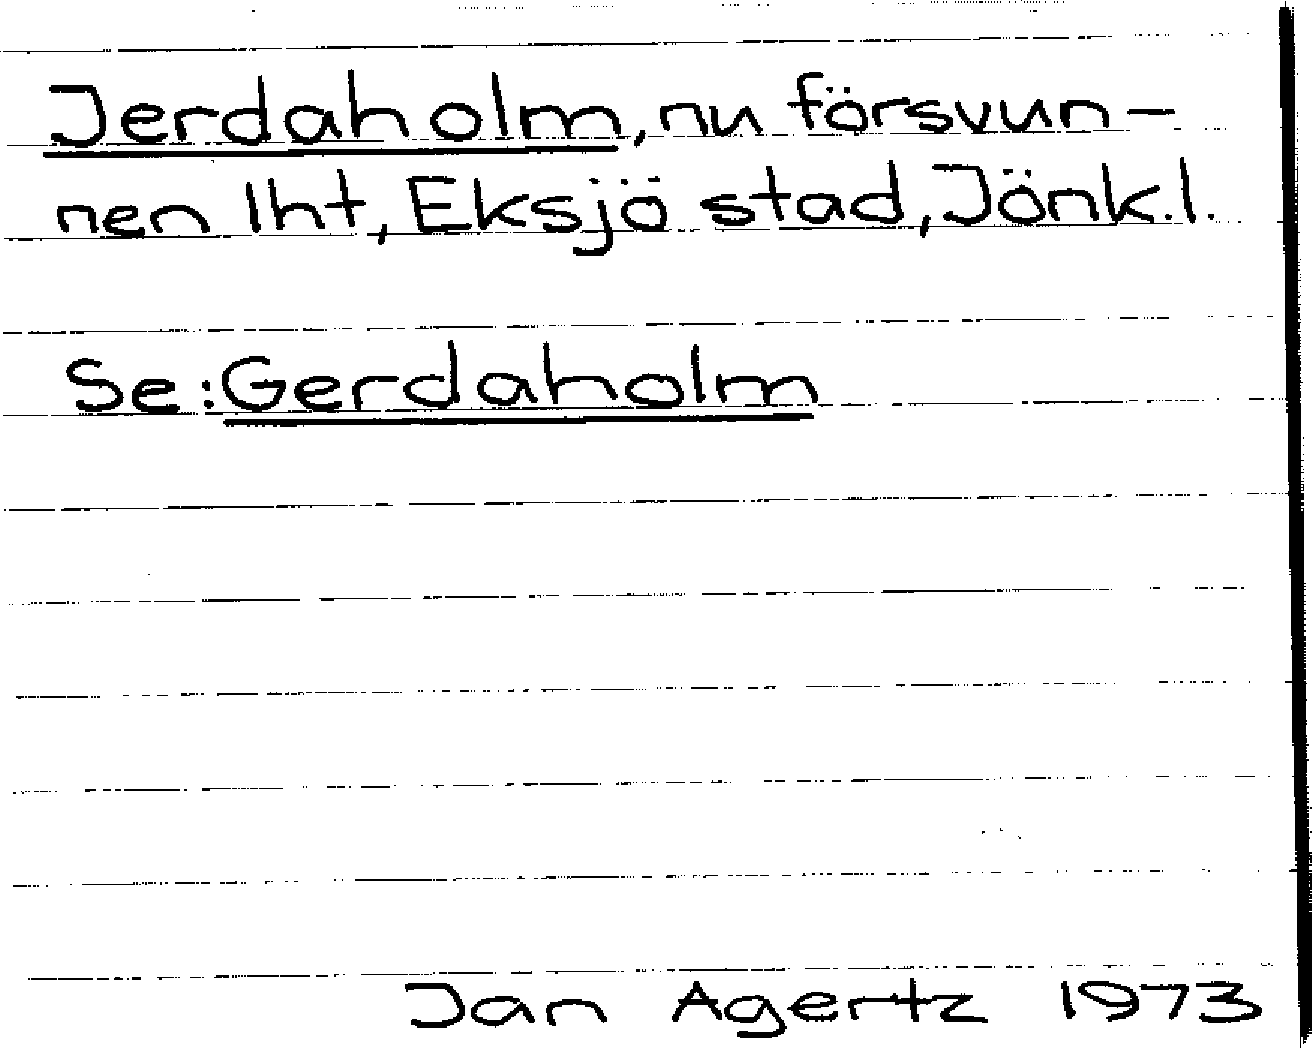 Jerdaholm, nu försvun-
nen lht, Eksjö stad, Jönk.l.
Se: Gerdaholm
Jan Agertz 1973